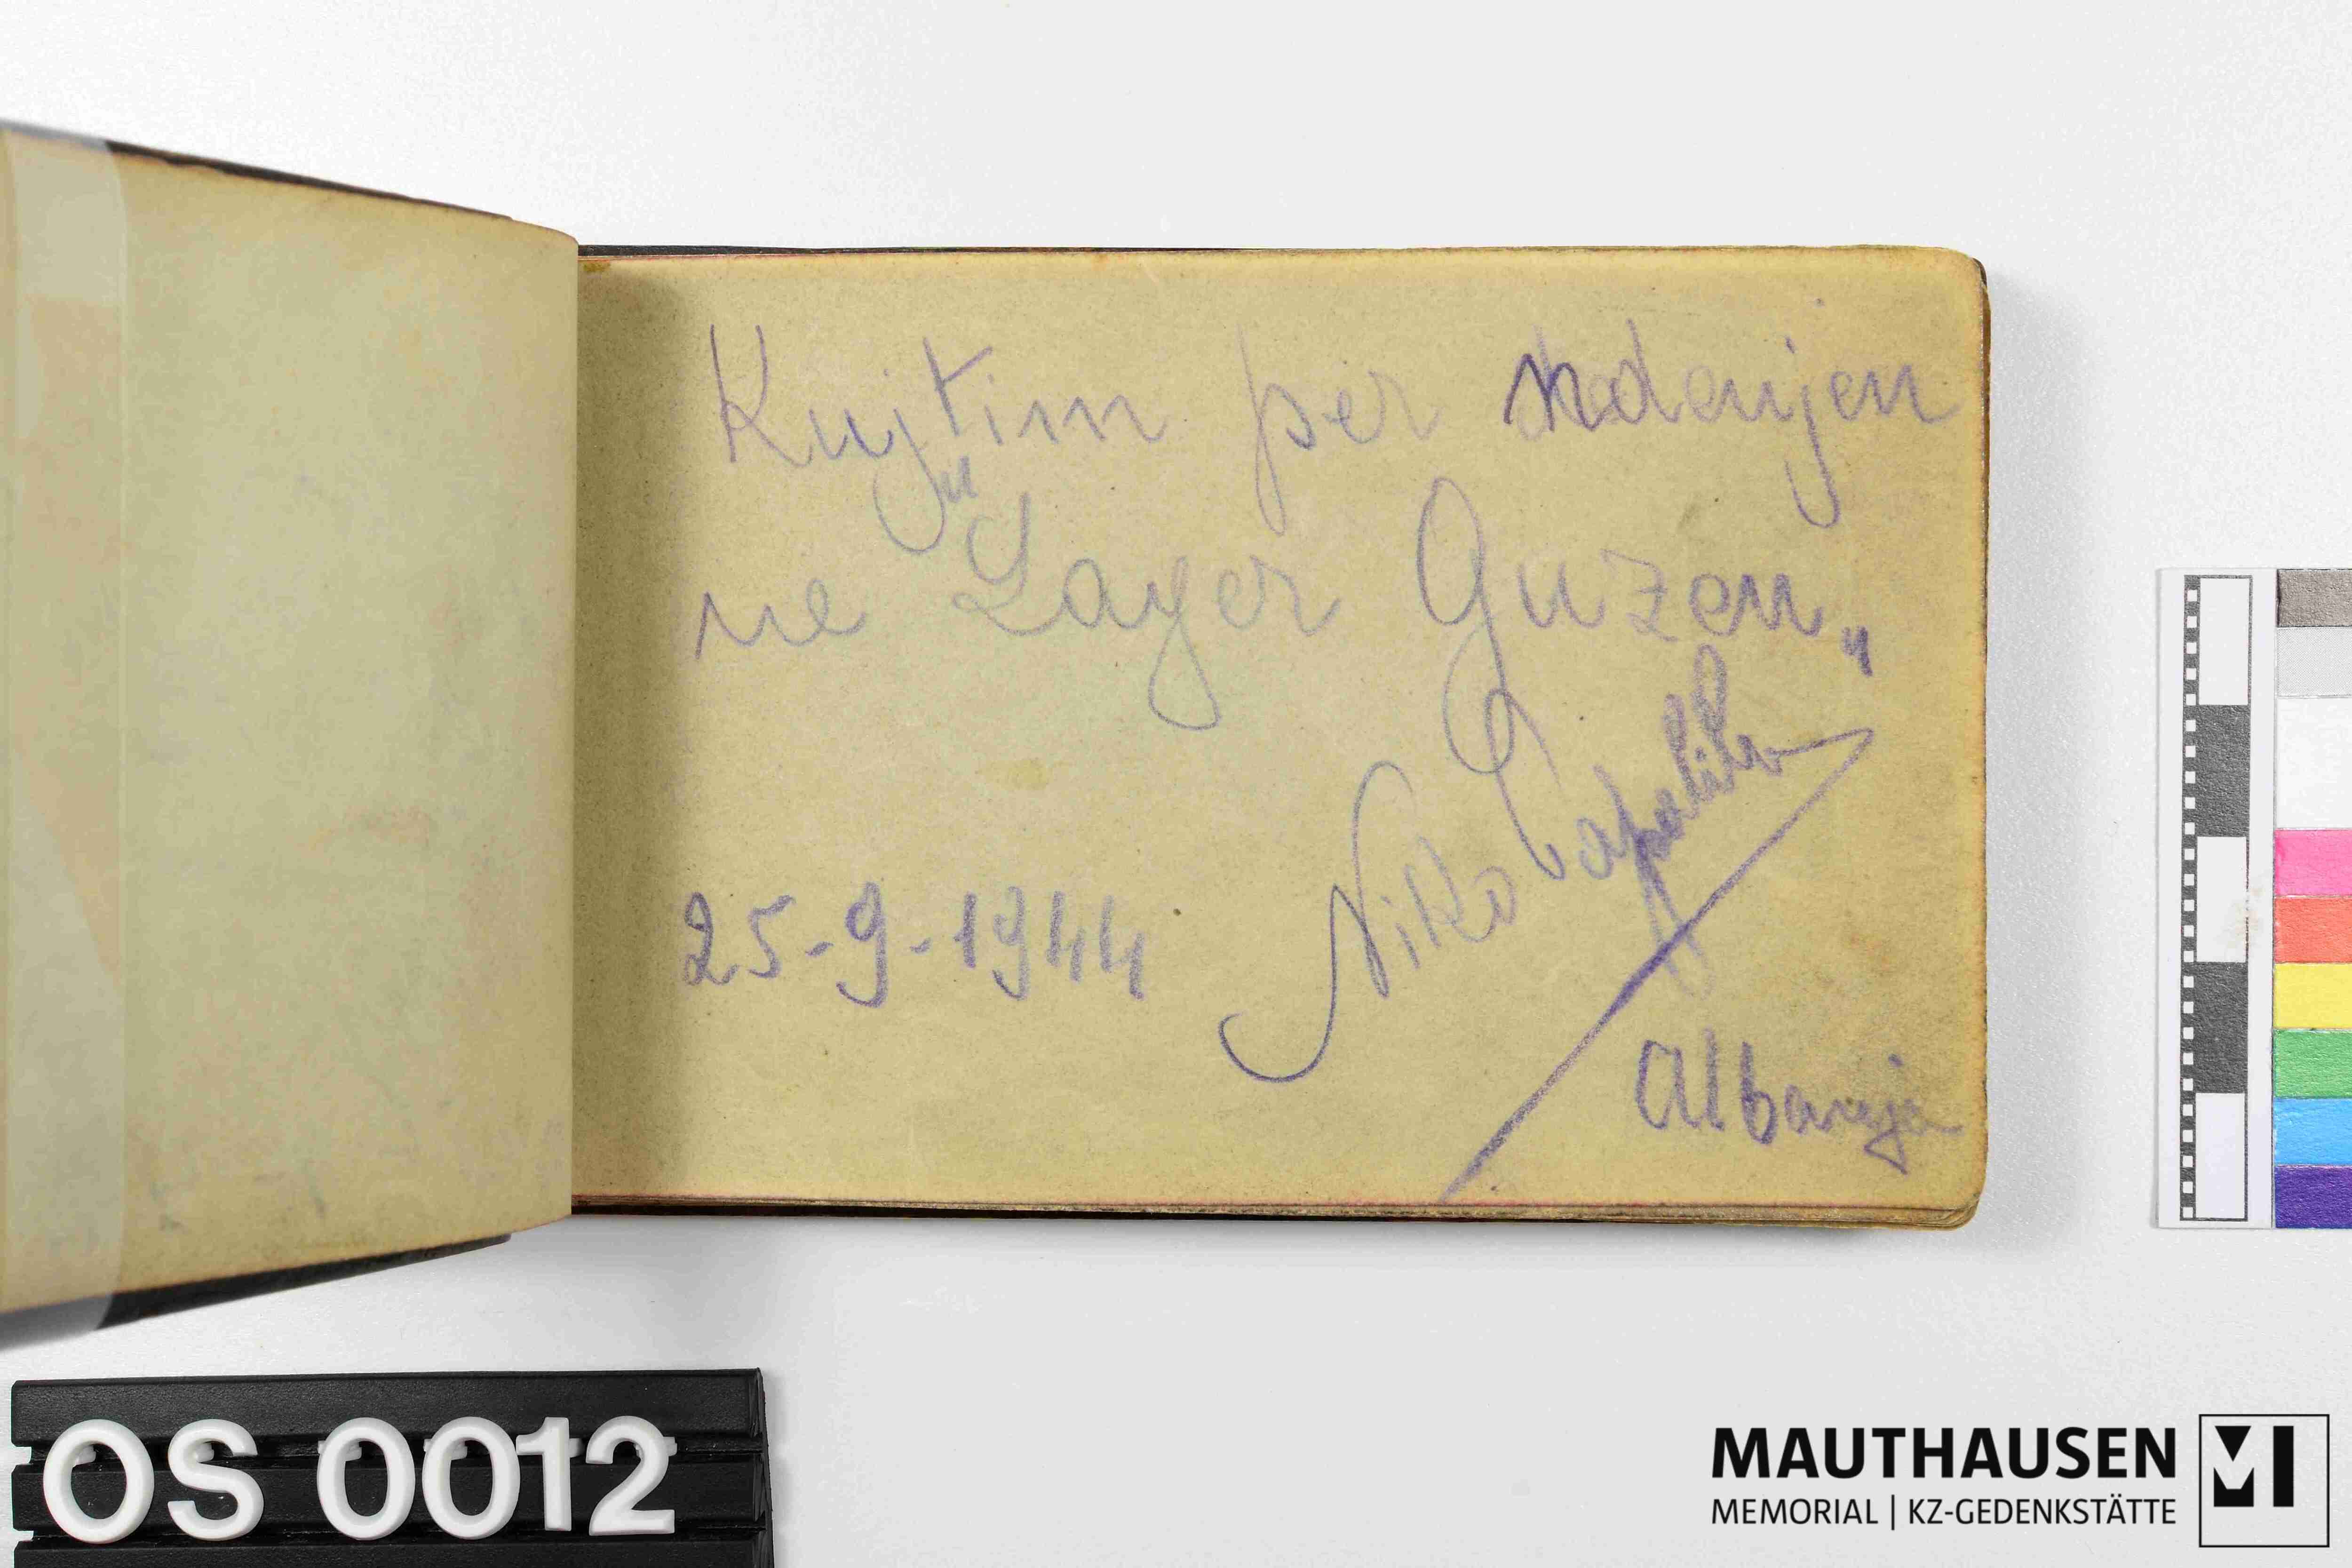 Kujtim për
ne "Lager Guzen"
Niko
25-9-1944
Albanija
OS 0012
MAUTHAUSEN
MEMORIAL | KZ-GEDENKSTÄTTE